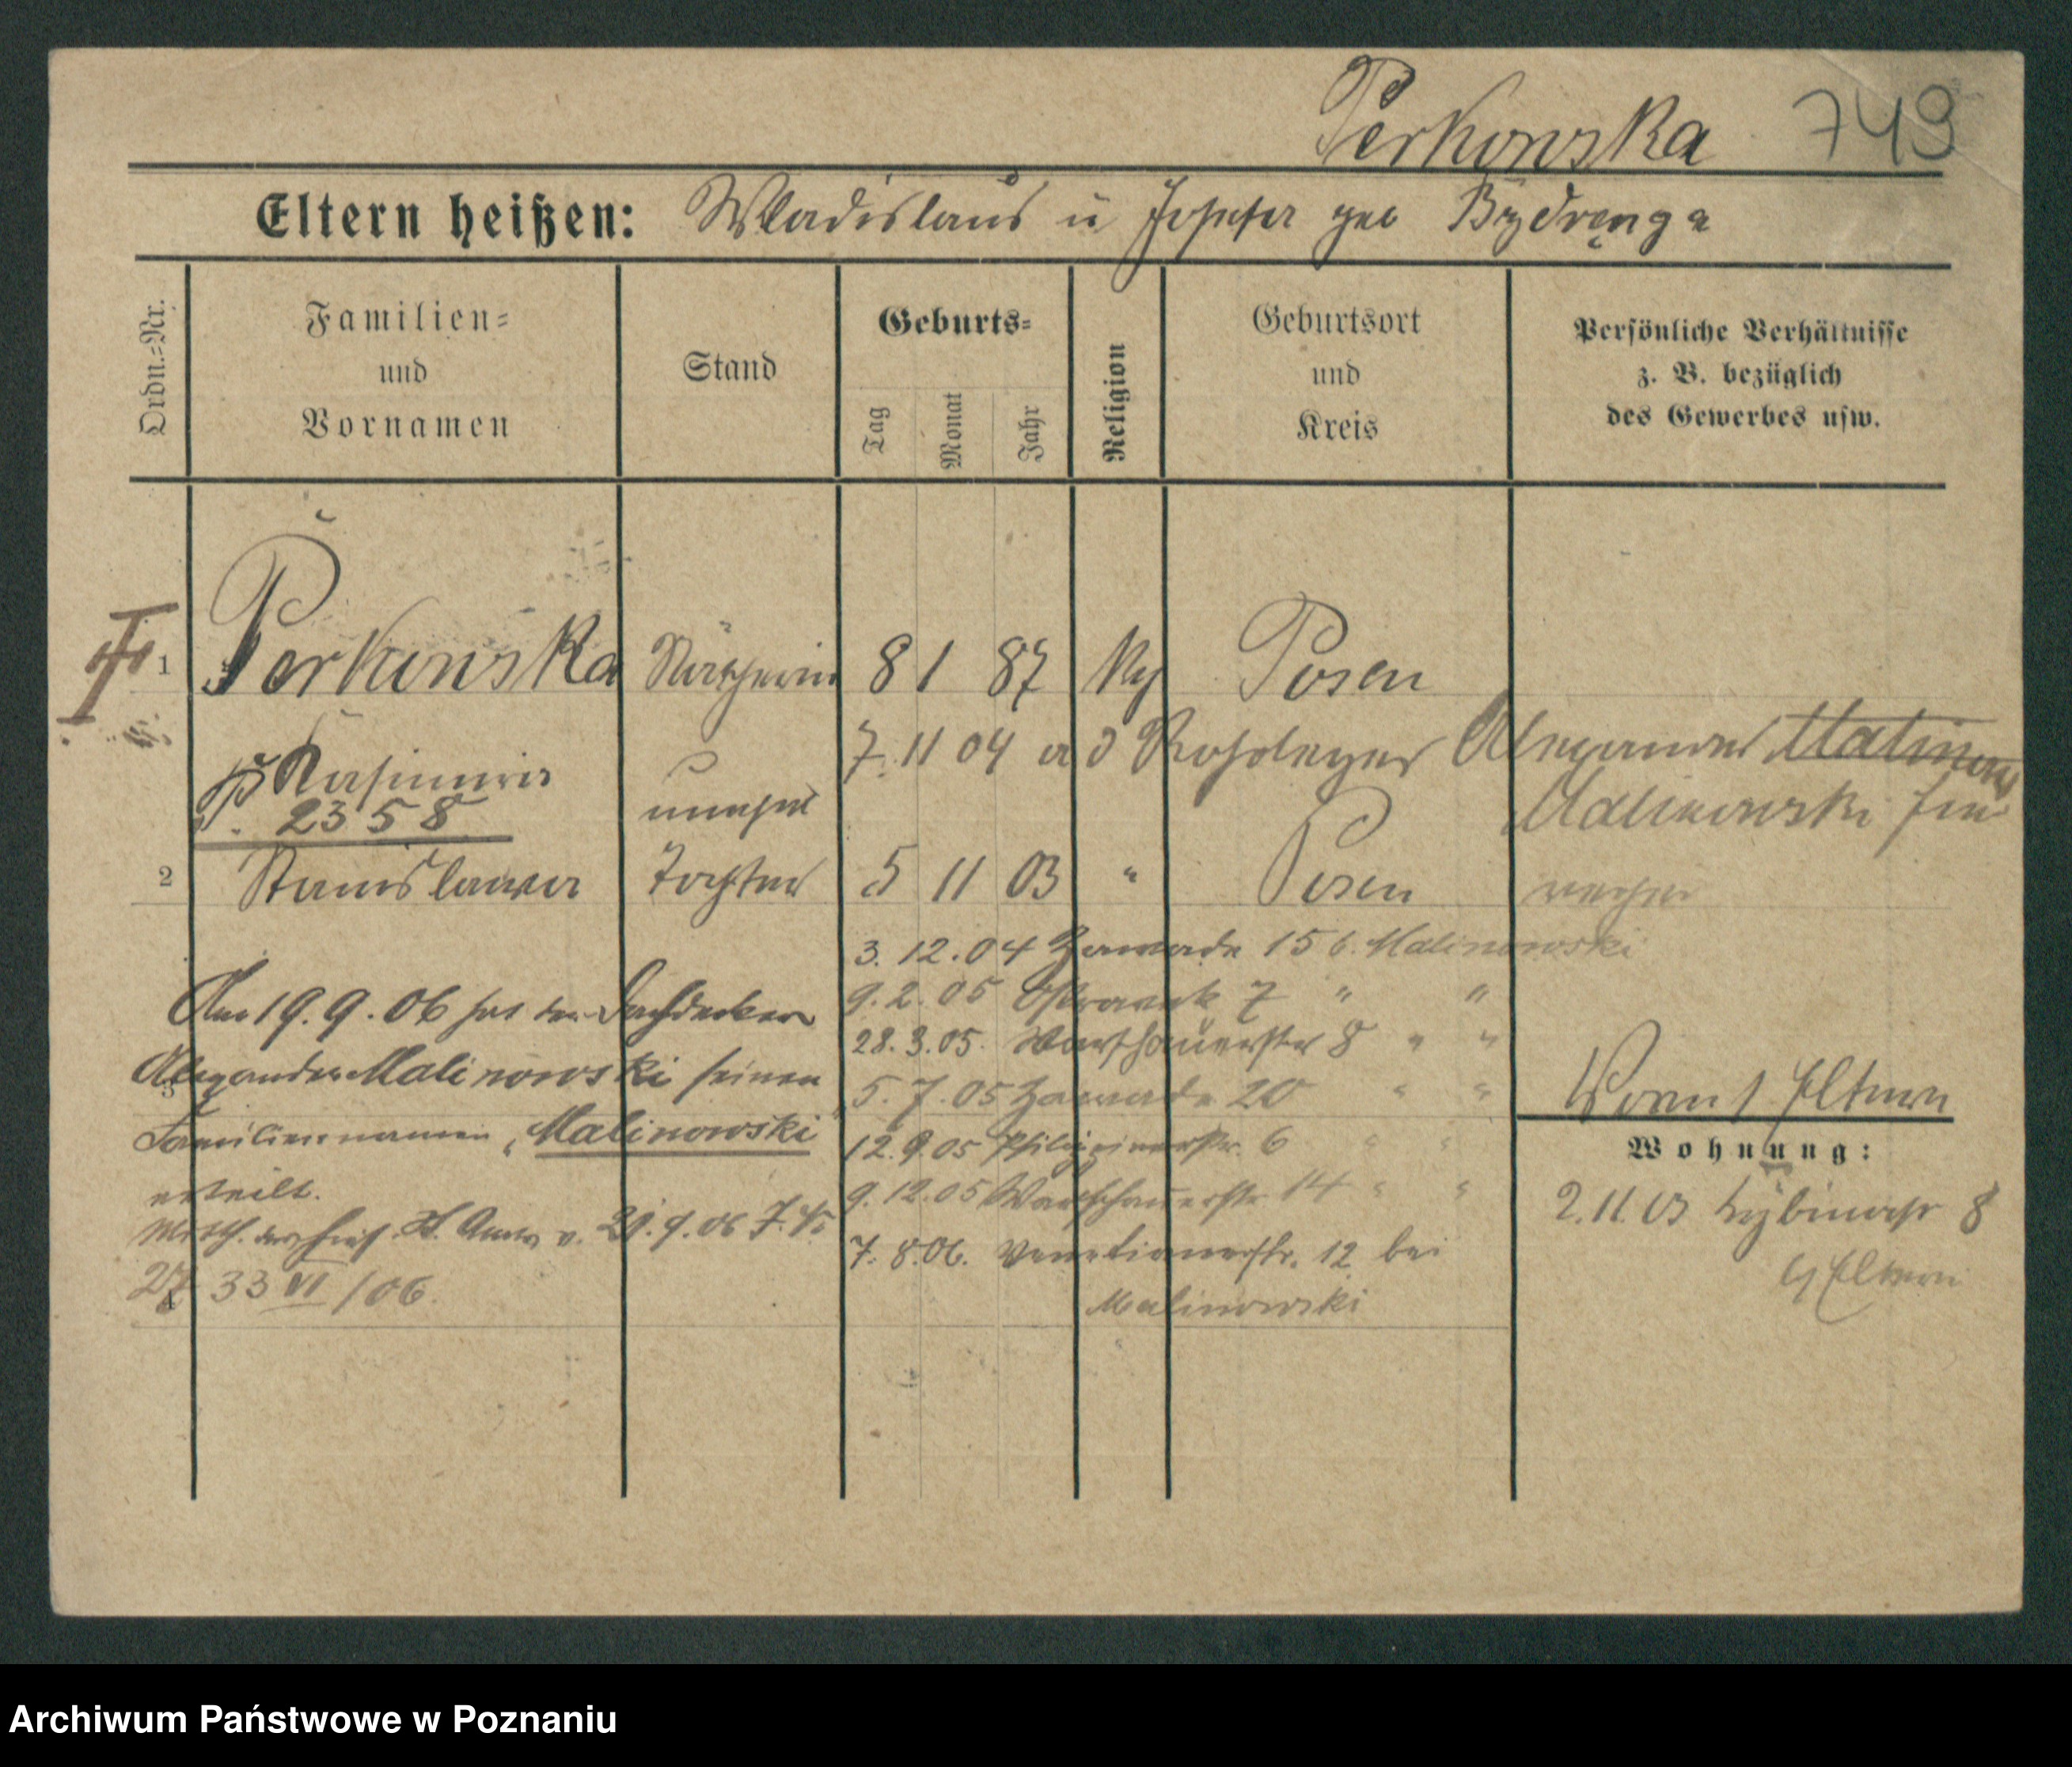 Perkowska 749
Eltern heißen: Wladislaus u Josefa geb Bydrenga
Ordn.=Nr.
Familien= und Vornamen
Stand
Geburts=
Tag
Monat
Jahr
Religion
Geburtsort und Kreis
Persönliche Verhältnisse z. B. bezüglich des Gewerbes usw.
1 Perkowska Näherin 8 1 87 Posen
7. 11 04 a d Rohrleger Alexander
Malinowski
Kasimira
2358
2 Stanislawa Tochter 5 11 03 " Posen
3. 12. 04 Zawade 15 b. Malinowski
9. 2. 05 Ostrowek 7 " "
28. 3. 05. Warschauerstr 8 " "
5. 7. 05 Zawade 20 " "
12. 9. 05 6 " "
9. 12. 05 Warschauerstr 14 " "
7. 8. 06. Venetianerstr. 12 bei
Malinowski
Am 19. 9. 06 hat der Dachdecker
3
Alexander Malinowski seinen
Familiennamen „Malinowski"
erteilt.
33 VI /06.
Vorm 1 Eltern
Wohnung:
2. 11. 03 8
Eltern
Archiwum Państwowe w Poznaniu